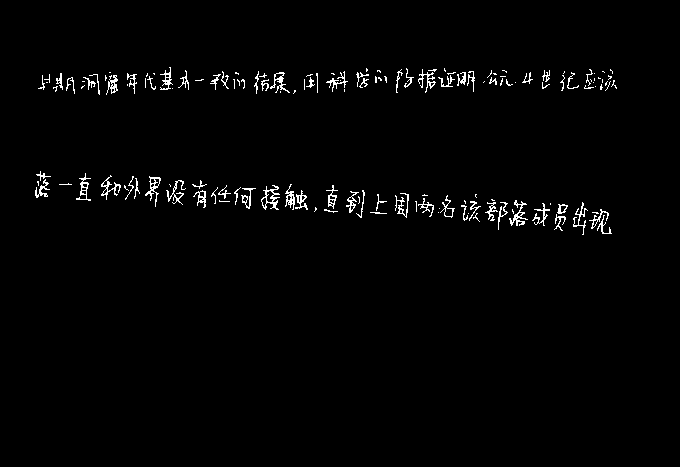 早期洞窟年代基本一致的结果,用科学的数据证明公元4世纪应该
落一直和外界没有任何接触,直到上周两名该部落成员出现